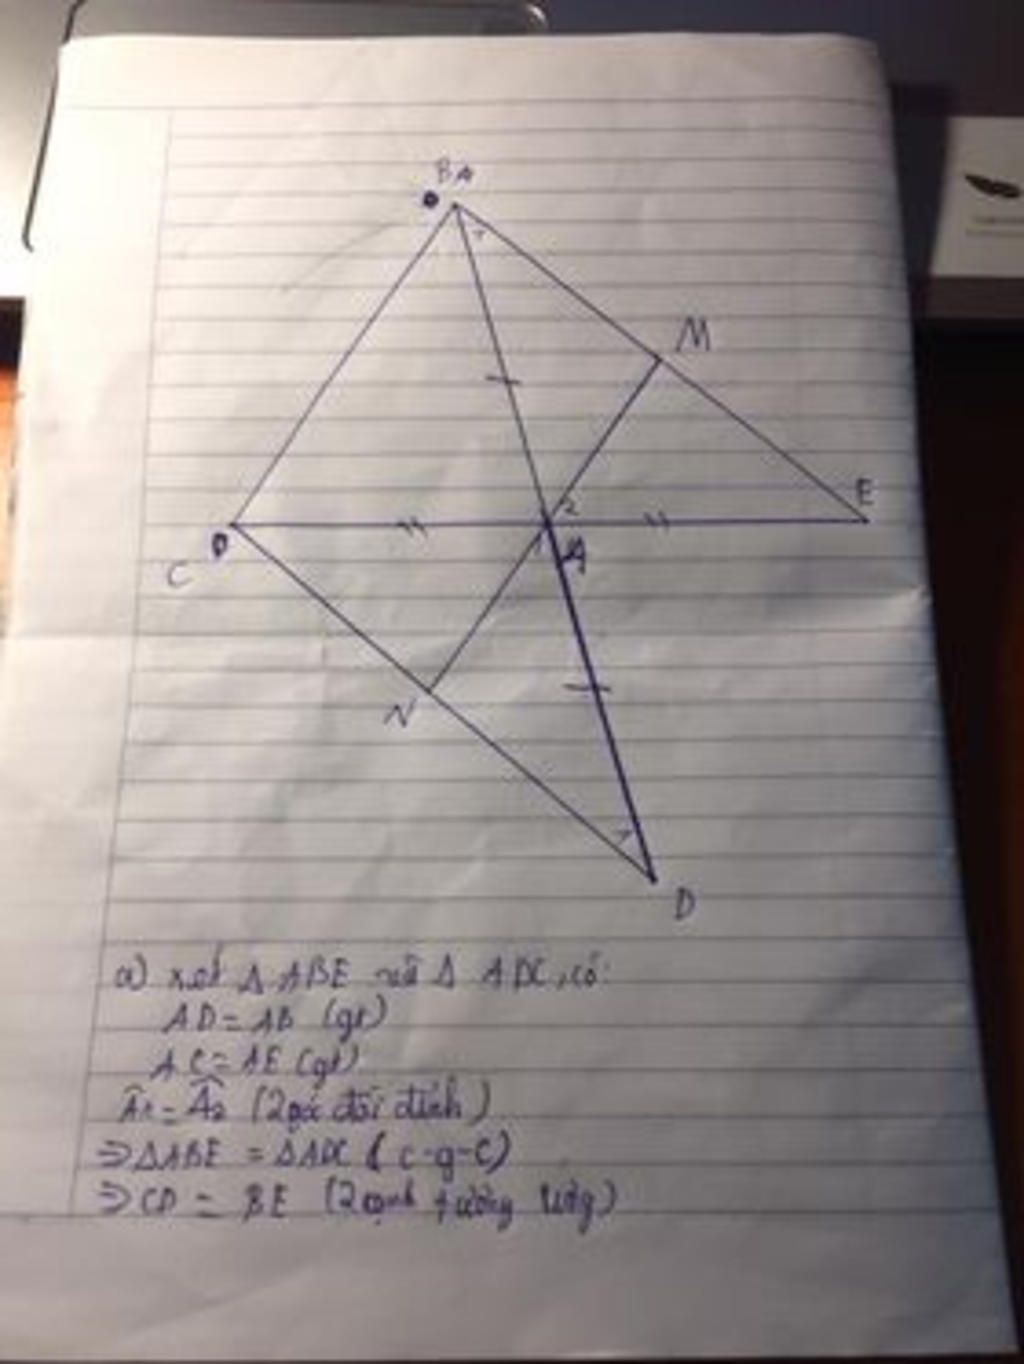 B A
M
E
2
C
1
A
N
D
a) xét Δ ABE và Δ ADC, có:
AD = AB (gt)
AC = AE (gt)
Â1 = Â2 (2 góc đối đỉnh)
⇒ ΔABE = ΔADC (c-g-c)
⇒ CD = BE (2 cạnh tương ứng)